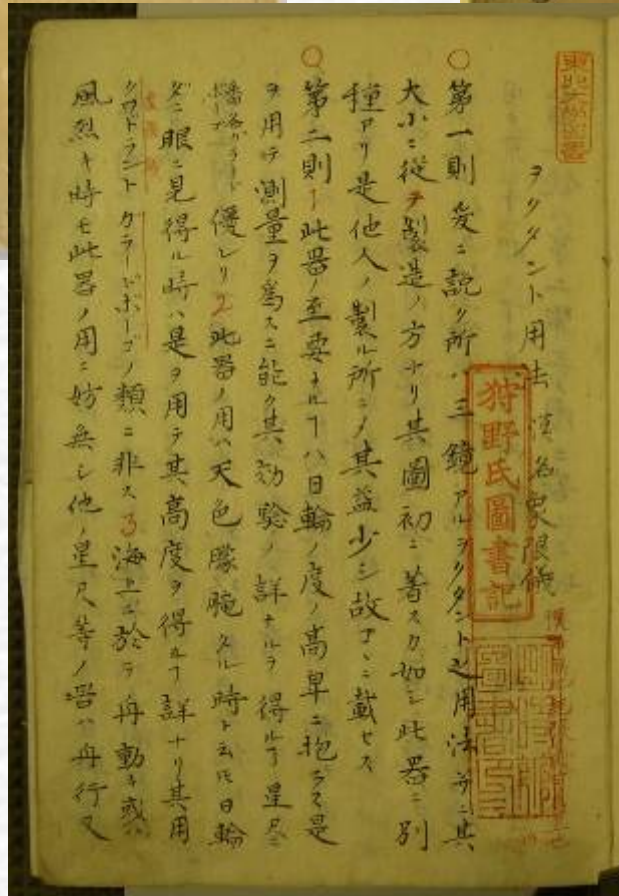 ヲクタント用法 漢名象限儀
○ 第一則 爰ニ説ク所ハ三鏡アルヲクタント之用法并ニ其
大小ニ從テ製造ノ方ナリ其圖初ニ著スカ如シ此器ニ別
種アリ是他人ノ製ル所ニ〆其益少シ故ニ載セス
○ 第二則 1 此器ノ至要ナルヿハ日輪ノ度ノ高卑ニ抱ラス是
ヲ用テ測量ヲ爲スニ能ク其効驗ノ詳ナルヲ得ルヿ星尺
優レリ 2 此器ノ用ハ天色朦朧タル時ト云ヒ日輪
眼ニ見得ル時ハ是ヲ用テ其高度ヲ得ルヿ詳ナリ其用
クワトラント ガラードボーゴノ類ニ非ス 3 海上ニ於テ舟動キ或ハ
風烈キ時モ此器ノ用ニ妨無シ他ノ星尺等ノ器ハ舟行又
狩野氏圖書記